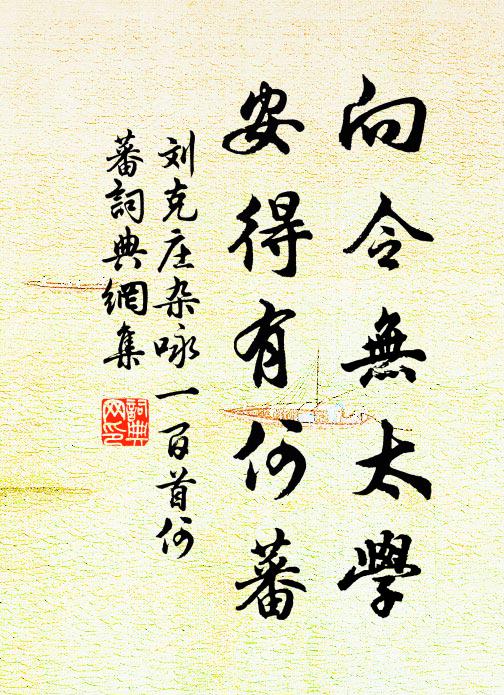 向令無太學
安得有何蕃
刘克庄杂咏一百首何
蕃詞典網集
詞典
网印